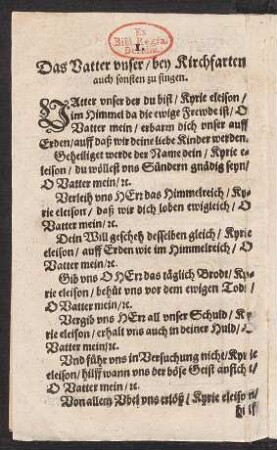 Ex
Bibl. Regia
I.
Das Vatter vnser / bey Kirchfarten
auch sonsten zu singen.
VAtter vnser der du bist / Kyrie eleison /
im Himmel da die ewige Frewde ist / O
Vatter mein / erbarm dich vnser auff
Erden / auff daß wir deine liebe Kinder werden.
Geheiliget werde der Name dein / Kyrie e-
leison / du wöllest vns Sündern gnädig seyn /
O Vatter mein / ꝛc.
Verleih vns HErr das Himmelreich / Ky-
rie eleison / daß wir dich loben ewigleich / O
Vatter mein / ꝛc.
Dein Will gescheh desselben gleich / Kyrie
eleison / auff Erden wie im Himmelreich / O
Vatter mein / ꝛc.
Gib vns O HErr das täglich Brodt / Ky-
rie eleison / behüt vns vor dem ewigen Tod: /
O Vatter mein / ꝛc.
Vergib vns HErr all vnser Schuld / Ky-
rie eleison / erhalt vns auch in deiner Huld / O
Vatter mein / ꝛc.
Vnd führ vns in Versuchung nicht / Kyrie
eleison / hilff wann vns der böse Geist ansicht /
O Vatter mein / ꝛc.
Von allem Vbel vns erlöß / Kyrie eleison /